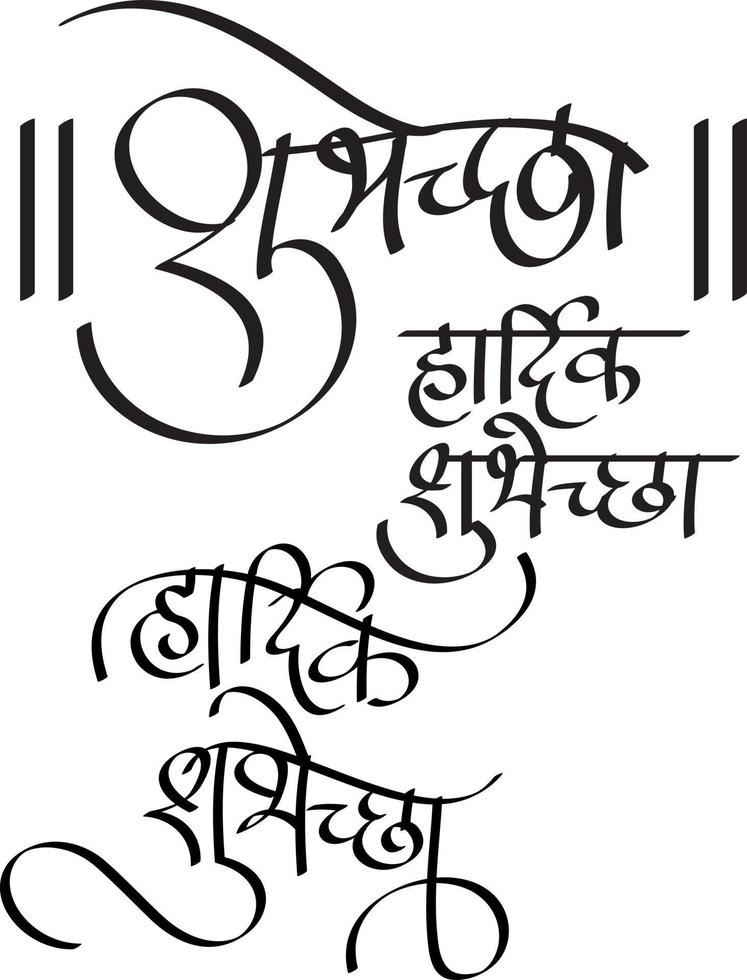 ॥ शुभेच्छा ॥
हार्दिक
शुभेच्छा
हार्दिक
शुभेच्छा